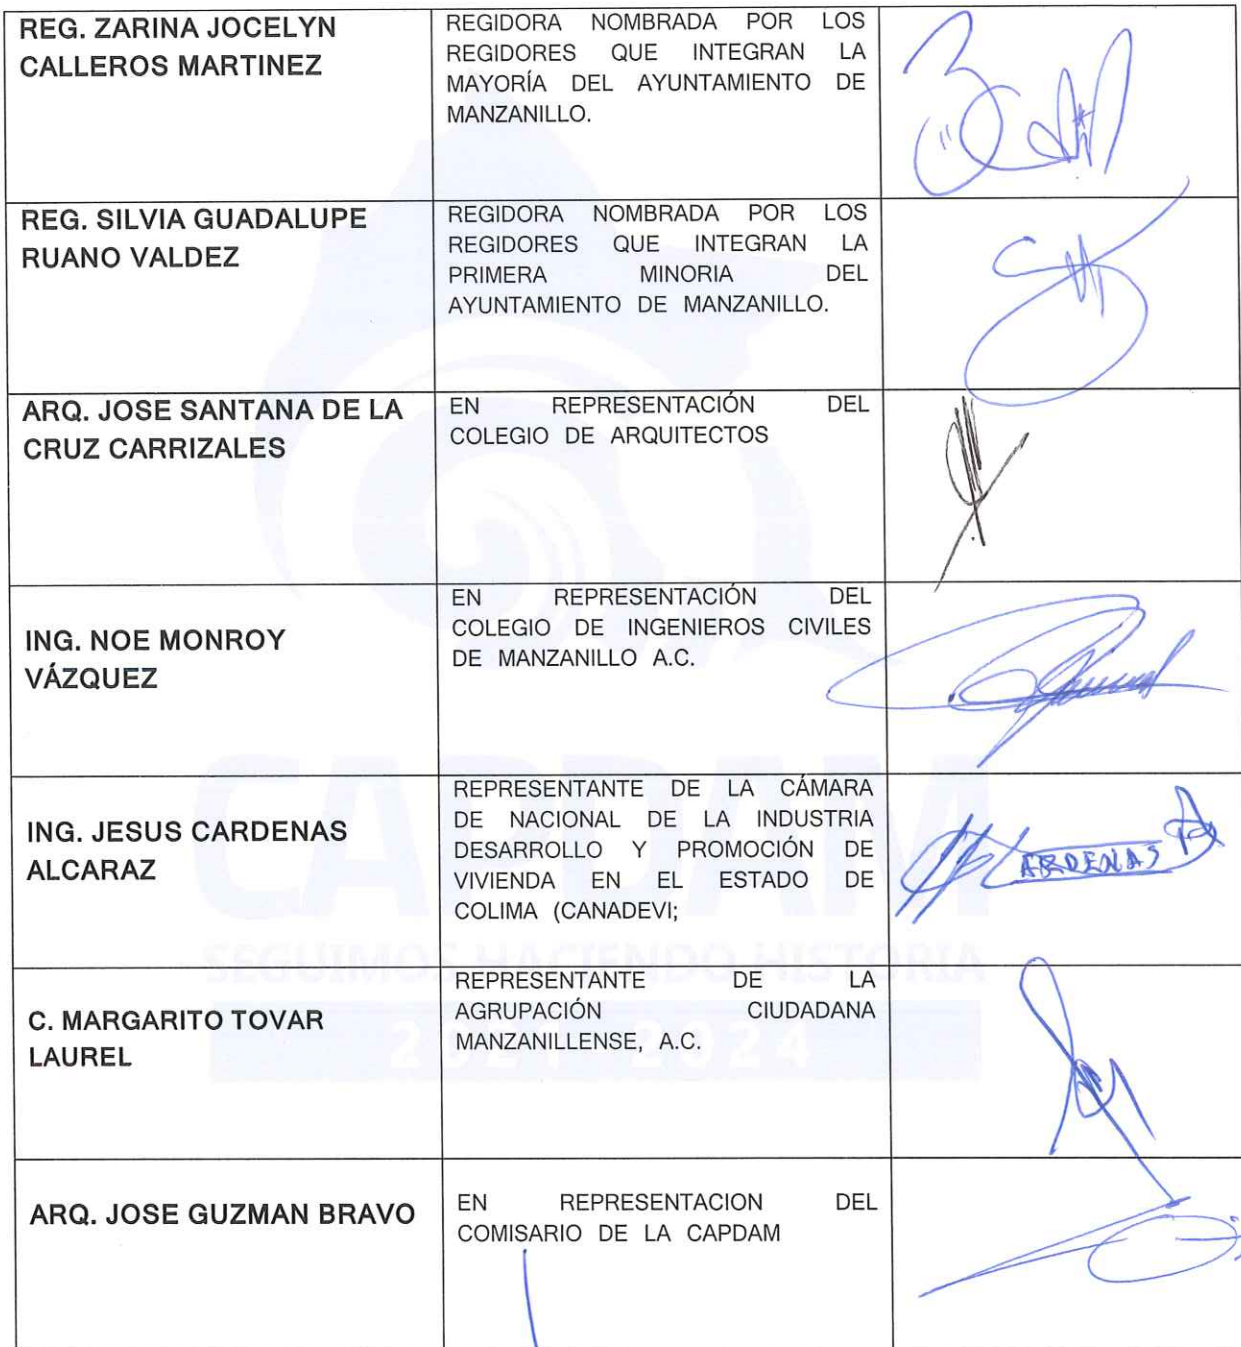 REG. ZARINA JOCELYN
CALLEROS MARTINEZ
REGIDORA NOMBRADA POR LOS
REGIDORES QUE INTEGRAN LA
MAYORÍA DEL AYUNTAMIENTO DE
MANZANILLO.
REG. SILVIA GUADALUPE
RUANO VALDEZ
REGIDORA NOMBRADA POR LOS
REGIDORES QUE INTEGRAN LA
PRIMERA MINORIA DEL
AYUNTAMIENTO DE MANZANILLO.
ARQ. JOSE SANTANA DE LA
CRUZ CARRIZALES
EN REPRESENTACIÓN DEL
COLEGIO DE ARQUITECTOS
ING. NOE MONROY
VÁZQUEZ
EN REPRESENTACIÓN DEL
COLEGIO DE INGENIEROS CIVILES
DE MANZANILLO A.C.
ING. JESUS CARDENAS
ALCARAZ
REPRESENTANTE DE LA CÁMARA
DE NACIONAL DE LA INDUSTRIA
DESARROLLO Y PROMOCIÓN DE
VIVIENDA EN EL ESTADO DE
COLIMA (CANADEVI;
CARDENAS
C. MARGARITO TOVAR
LAUREL
REPRESENTANTE DE LA
AGRUPACIÓN CIUDADANA
MANZANILLENSE, A.C.
ARQ. JOSE GUZMAN BRAVO
EN REPRESENTACION DEL
COMISARIO DE LA CAPDAM
CAPDAM
SEGUIMOS HACIENDO HISTORIA
2021 2024